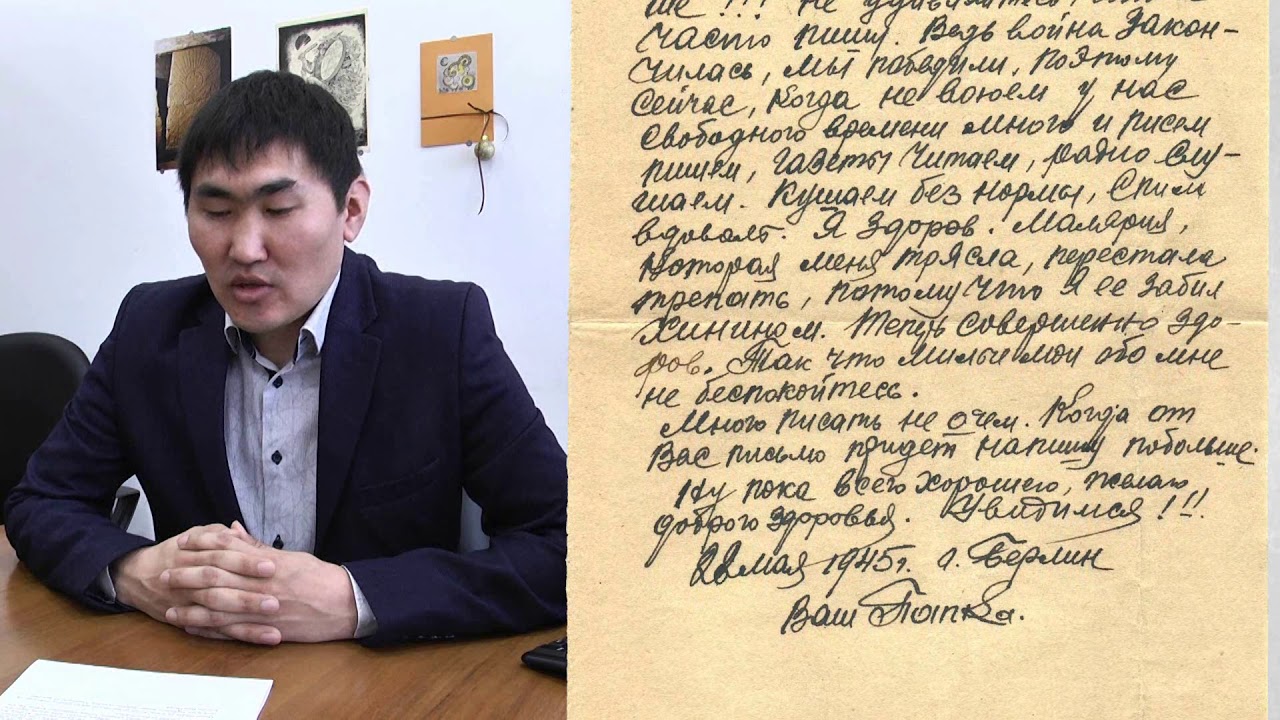 ше !!! Не удивляйтесь, что я
часто пишу. Ведь война закон-
чилась, мы победили, поэтому
сейчас, когда не воюем у нас
свободного времени много и писем
пишем, газеты читаем, радио слу-
шаем. Кушаем без нормы, Спим
вдоволь. Я здоров. Малярия,
которая меня трясла, перестала
трепать, потому что я ее забил
хинином. Теперь совершенно здо-
ров. Так что милые мои обо мне
не беспокойтесь.
Много писать не о чем. Когда от
Вас письмо придет напишу побольше.
Ну пока всего хорошего, желаю
доброго здоровья. Увидимся !!!
28 мая 1945 г. г. Берлин
Ваш Папка.